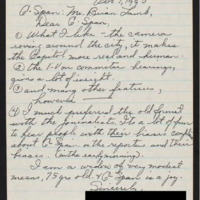 Dec 7, 1993
C-Span: Mr. Brian Lamb,
Dear C-Span,
① What I like - the camera
roving around the city, it makes
the Capitol more real and human.
② the 1-on commuter hearings,
give a lot of insight
③ and many other features,
however
④ I much preferred the old format
with the journalists. It's a lot of fun
to hear people with their
about C-Span - on the reporters and their
biases. (in the early morning).
I am a widow of very modest
means, 75 yrs old. & C-Span is a joy.
Sincerely,